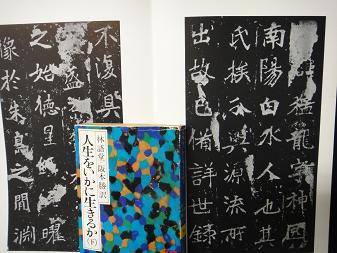 猛龍字神
南陽白水人也其
氏族分興源流所
出故已備詳世録
不復具
盛
之始德星曜
像於朱鳥之間淵
林語堂 阪本勝訳
人生をいかに生きるか(下)